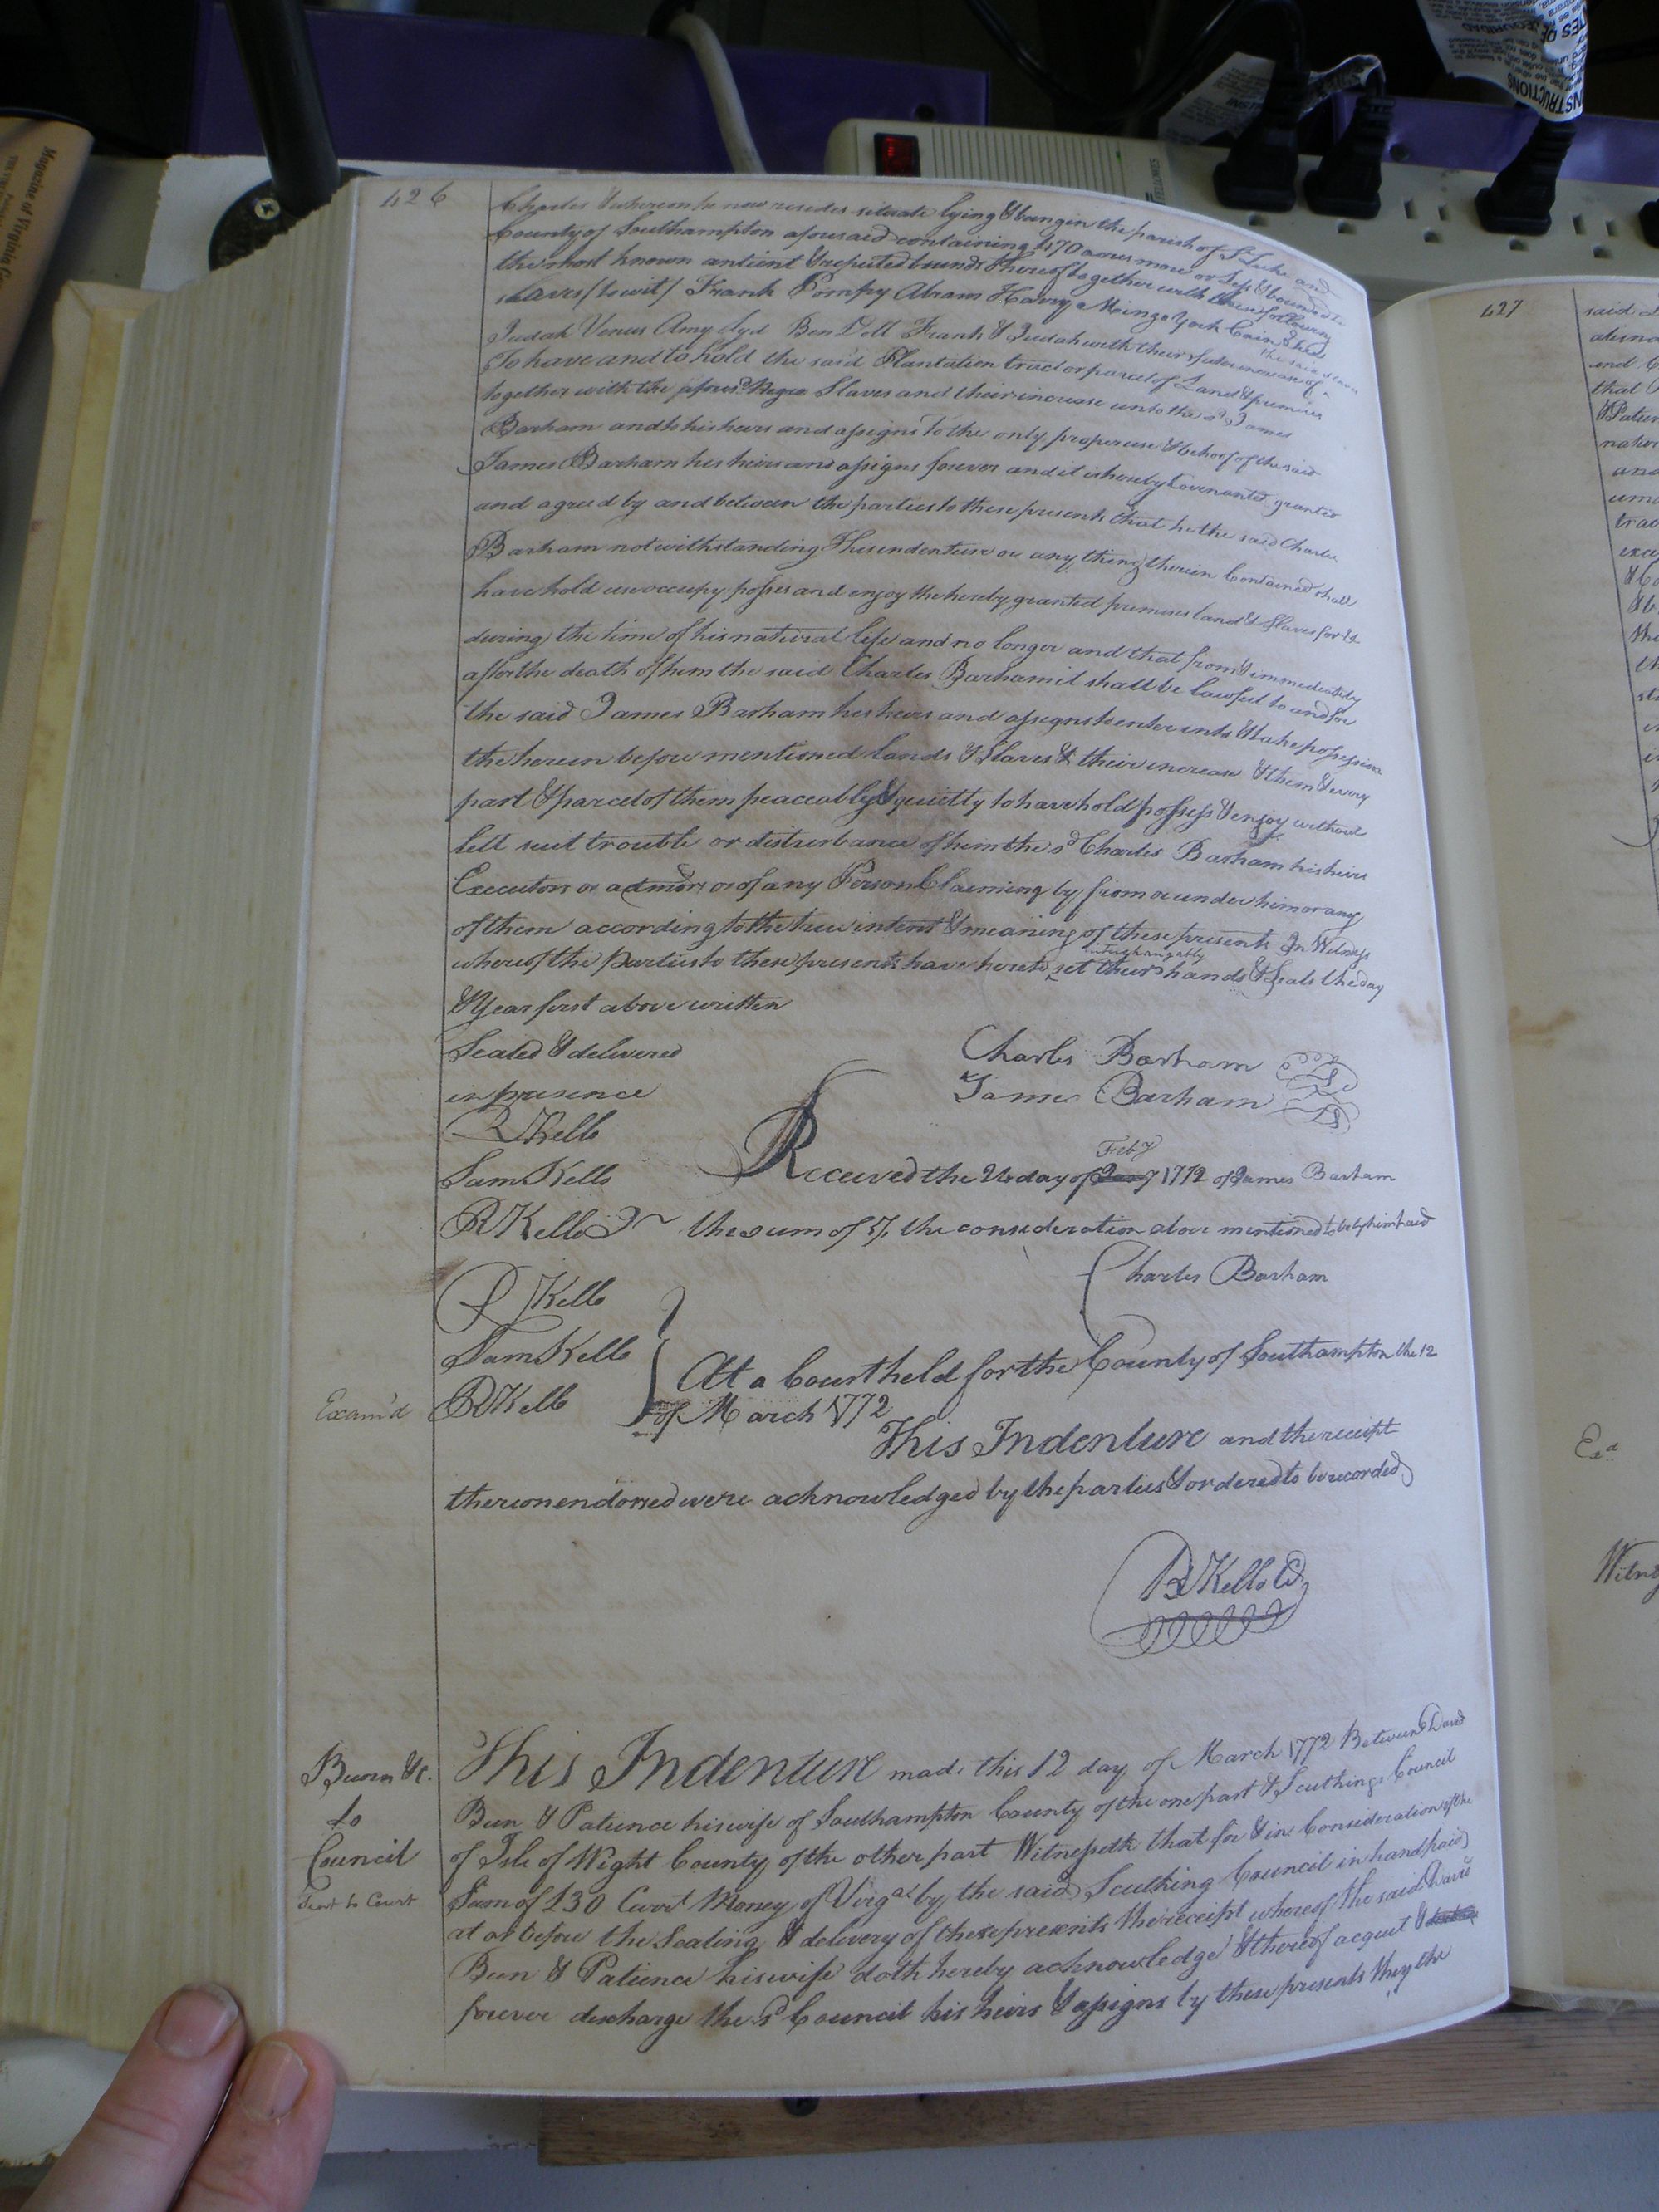 426
Charles & whereon he now resides situate lying & being in the parish of St Luke and
County of Southampton aforesaid containing 470 acres more or less & bounded
the most known antient & reputed bounds thereof together with these following
slaves (to wit) Frank Pompy Abram Harry Mingo York Cain
Judah Venus Amy Syd Ben Doll Frank & Judah with their future increase of the said slaves
To have and to hold the said Plantation tract or parcel of Land & premises
together with the afores.d Negro Slaves and their increase unto the sd James
Barham and to his heirs and assigns to the only proper use & behoof of the said
James Barham his heirs and assigns forever and it is hereby Covenanted granted
and agreed by and between the parties to these presents that he the said Charles
Barham notwithstanding This indenture or any thing therein Contained shall
have hold use occupy posses and enjoy the hereby granted premises land & Slaves for &
during the time of his natural life and no longer and that from & immediately
after the death of him the said Charles Barham it shall be lawful to and for
the said James Barham his heirs and assigns to enter into & take possession
the herein before mentioned lands & Slaves & their increase & them & every
part & parcel of them peaceably & quietly to have hold possess & enjoy without
lett suit trouble or disturbance of him the sd Charles Barham his heirs
Executors or admors or of any Person Claiming by from or under him or any
of them according to the true intent & meaning of these presents In Witness
whereof the Parties to these presents have hereto interchangably set their hands & Seals the day
& Year first above written
Sealed & delivered
in presence
Charles Barham LS
James Barham LS
R Kello
Sam Kello
R Kello Jr
Received the 26 day of Feby 1772 of James Barham
the sum of 5/. the consideration above mentioned to be by him paid
Charles Barham
R Kello
Sam Kello
R Kello
Exam'd
At a Court held for the County of Southampton the 12
of March 1772
This Indenture and the receipt
thereon endorsed were acknowledged by the parties & ordered to be recorded
R Kello C
Bunn &c.
to
Council
This Indenture made this 12 day of March 1772 Between David
Bun & Patience his wife of Southampton County of the one part & Scutching Council
of Isle of Wight County of the other part Witnesseth that for & in Consideration of the
Sum of £30 Curr.t Money of Virga by the said Scutking Council in hand paid
at or before the Sealing & delivery of these presents the receipt whereof the said David
Bun & Patience his wife doth hereby acknowledge & thereof acquit &
forever discharge the sd Council his heirs & assigns by these presents they the
427
said
and
that
Exd
Witne
Magazine of Virginia
FELLOWES
INSTRUCTIONS